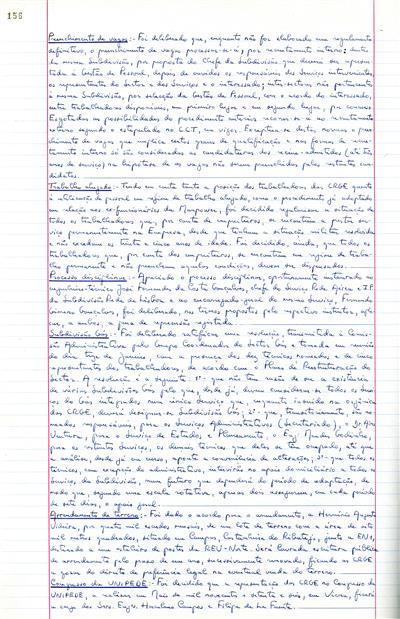 156
Preenchimento de vagas:- Foi deliberado que, enquanto não for elaborado um regulamento
definitivo, o preenchimento de vagas processar-se-á, por recrutamento interno: dentro
da mesma Subdivisão, por proposta do Chefe da Subdivisão que deverá ser apresen-
tada à Gestão de Pessoal, depois de ouvidos os responsáveis dos Serviços intervenientes,
os representantes do Sector e dos Serviços e o interessado; inter-sectores não pertencentes
à mesma Subdivisão, por selecção da Gestão de Pessoal, com o acordo do interessado,
entre trabalhadores disponíveis, em primeiro lugar e em segundo lugar, por concurso.
Esgotadas as possibilidades do procedimento anterior recorrer-se-á ao recrutamento
externo segundo o estipulado no CCT, em vigor. Exceptua-se destas normas o preen-
chimento de vagas que implica certos graus de qualificação e nas formas de recruta-
mento interno só são consideradas as candidaturas dos recém-admitidos (até três
anos de serviço) na hipótese de as vagas não serem preenchidas pelos restantes can-
didatos.
Trabalho alugado:- Tendo em conta tanto a posição dos trabalhadores das CRGE quanto
à utilização de pessoal em regime de trabalho alugado, como o procedimento já adoptado
em relação aos ex-funcionários da foi decidido regularizar a situação de
todos os trabalhadores que, por conta de empreiteiros, se encontram a prestar ser-
viço permanentemente na Empresa, desde que tenham a situação militar resolvida
e não excedam os trinta e cinco anos de idade. Foi decidido, ainda, que todos os
trabalhadores que, por conta dos empreiteiros, se encontram em regime de traba-
lho permanente e não preenchem aquelas condições, devem ser dispensados.
Processo disciplinar:- Apreciado o processo disciplinar, oportunamente instaurado ao
engenheiro-técnico José Fernando da Costa Gonçalves, chefe do Serviço Rede Aérea e I.P.
da Subdivisão Rede de Lisboa e ao encarregado-geral do mesmo Serviço, Fernando
Gonçalves, foi deliberado, nos termos propostos pelo respectivo instrutor, apli-
car, a ambos, a pena de repreensão registada.
Subdivisões Gás:- Foi deliberado ratificar uma resolução, transmitida à Comis-
são Administrativa pelo Grupo Coordenador do Sector Gás e tomada em reunião
do dia treze de Janeiro, com a presença dos dez técnicos nomeados e de cinco
representantes dos trabalhadores, de acordo com o Plano de Reestruturação do
Sector. A resolução é a seguinte: 1º- que não tem mais de ser a existência
de várias Subdivisões Gás pelo que, desde já, devem considerar-se todos os Servi-
ços do Gás integrados num único Serviço que, enquanto inserido na orgânica
das CRGE, deverá designar-se Subdivisão Gás; 2º- que, transitoriamente, são no-
meados responsáveis, para os Serviços Administrativos (Secretariado), o Sr.
Ventura, para o Serviço de Estudos e Planeamento, o Engº Mendes Godinho,
para os restantes Serviços, os mesmos técnicos que deles se têm ocupado, até que
a análise, desde já em curso, aponte a conveniência de alteração; 3º- que todos os
técnicos, com excepção do administrativo, intervirão no apoio domiciliário a todos os
Serviços da Subdivisão, num futuro que dependerá do período de adaptação, de
modo que, segundo uma escala rotativa, apenas dois assegurem, em cada período
de sete dias, o apoio geral.
Arrendamento de terreno:- Foi dado o acordo para o arrendamento, a Hermínio Augusto
Vieira, por quatro mil escudos mensais, de um lote de terreno com a área de sete
mil metros quadrados, situado em Campos, Castanheira do Ribatejo, junto à EN1,
destinado a um estaleiro de postes da REV-Norte. Será lavrada escritura pública
de arrendamento pelo prazo de um ano, sucessivamente renovado, ficando as CRGE
a gozar do direito de preferência legal na eventual venda do terreno.
Congresso da UNIPEDE:- Foi decidido que a representação das CRGE no Congresso da
UNIPEDE, a realizar em Maio de mil novecentos e setenta e seis, em Viena, ficará
a cargo dos Snrs. Engºs. Campos e Filipe de la Fuente.